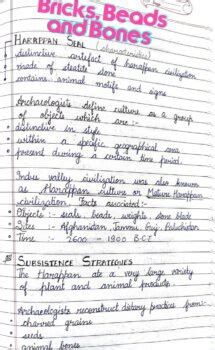 Bricks, Beads
and Bones
HARAPPAN SEAL (characteristics)
distinctive artefact of harappan civilization
made of steatite stone
contains animal motifs and signs
Archaeologists define culture as a group
of objects which are :-
distinctive in style
within a specific geographical area
present during a certain time period.
Indus valley civilization was also known
as Harappan culture or Mature Harappan
civilization. Facts associated :-
Objects :- seals, beads, weights, stone blade
Sites :- Afghanistan, Jammu, Guj, Baluchistan
Time :- 2600 - 1900 B.C.E
SUBSISTENCE STRATEGIES
The Harappan ate a very large variety
of plant and animal products
Archaeologists reconstruct dietary practices from:-
charred grains
seeds
animal bones